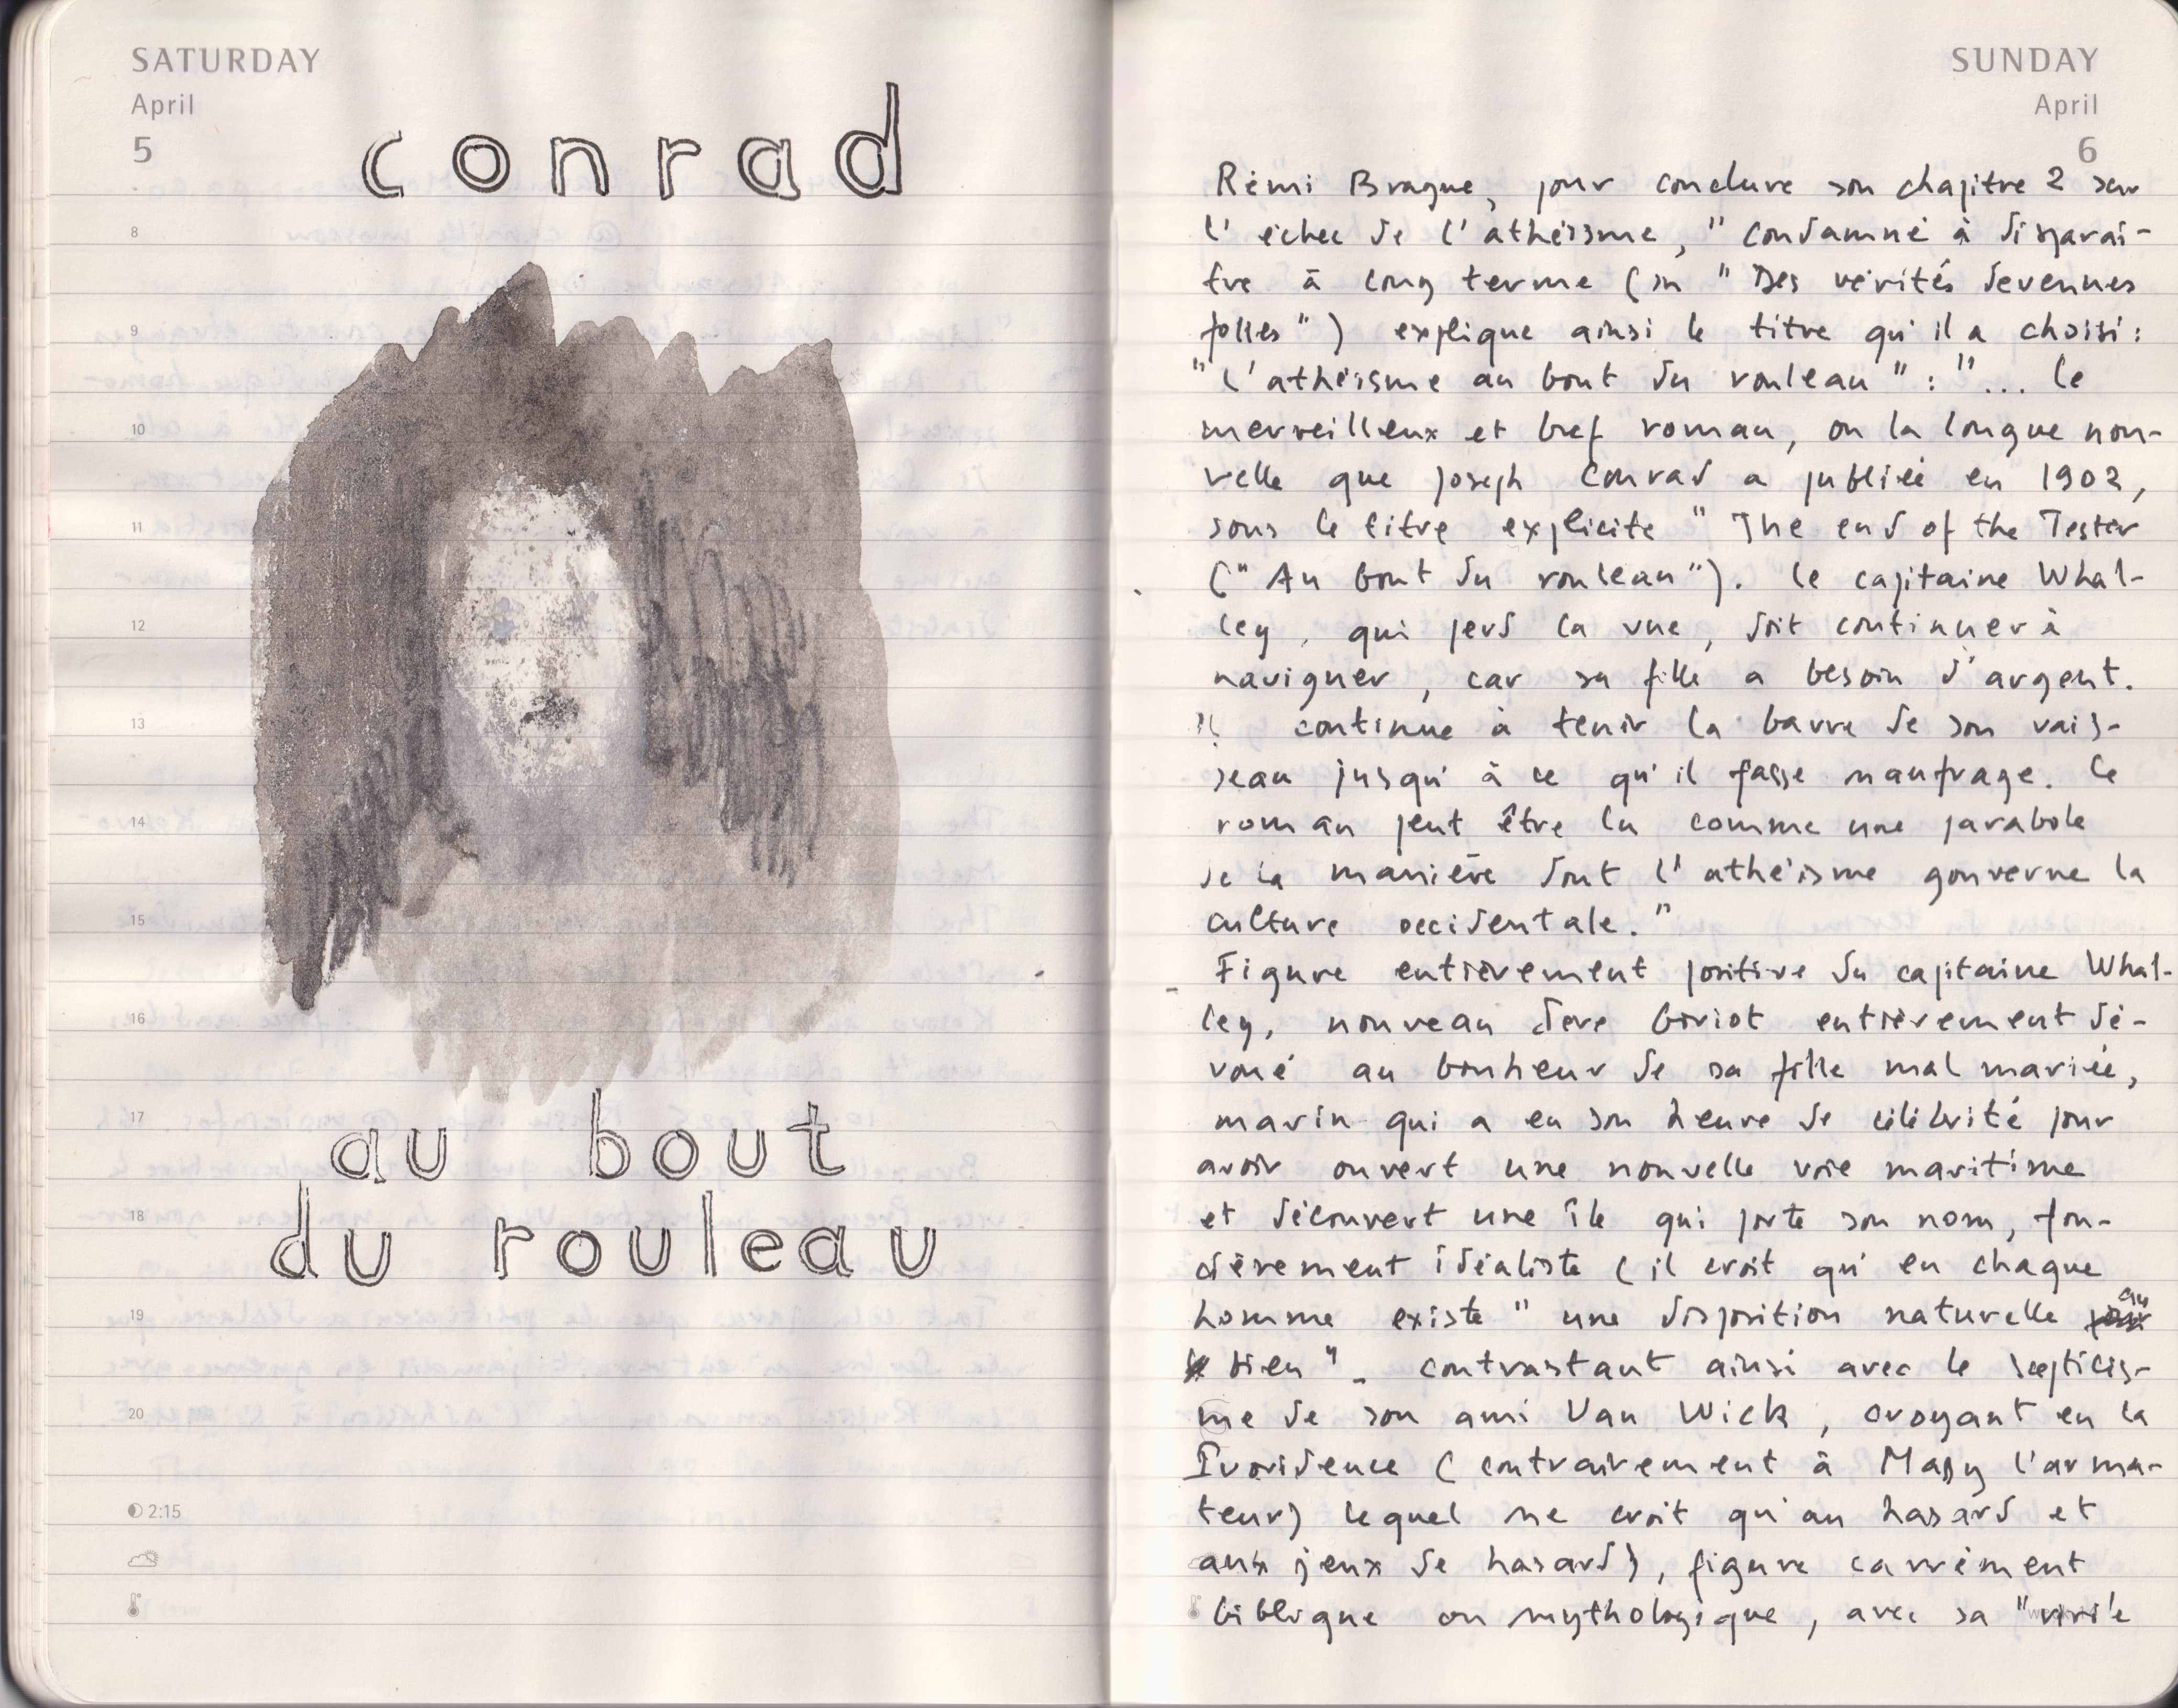 SATURDAY
April
5
conrad
8
9
10
11
12
13
14
15
16
au bout
17
du rouleau
18
19
20
2:15
SUNDAY
April
6
Rémi Brague, pour conclure son chapitre 2 sur
l'échec de l'athéisme, "condamné à disparaî-
tre à long terme (in "Des vérités devenues
folles") explique ainsi le titre qu'il a choisi:
"L'athéisme au bout du rouleau": "... le
merveilleux et bref roman, ou la longue nou-
velle que Joseph Conrad a publiée en 1902,
sous le titre explicite "The end of the Tester
("Au bout du rouleau"). Le capitaine Whal-
ley, qui perd la vue, doit continuer à
naviguer, car sa fille a besoin d'argent.
Il continue à tenir la barre de son vais-
seau jusqu'à ce qu'il fasse naufrage. Le
roman peut être lu comme une parabole
de la manière dont l'athéisme gouverne la
culture occidentale."
Figure entièrement positive du capitaine Whal-
ley, nouveau Goriot entièrement dé-
voué au bonheur de sa fille mal mariée,
marin qui a eu son heure de célébrité pour
avoir ouvert une nouvelle voie maritime
et découvert une île qui porte son nom, fon-
cièrement idéaliste (il croit qu'en chaque
homme existe "une disposition naturelle au
bien" - contrastant ainsi avec le scepticis-
me de son ami Van Wick, croyant en la
Providence (contrairement à Massy l'arma-
teur) lequel ne croit qu'au hasard et
aux jeux de hasard), figure carrément
biblique ou mythologique, avec sa "virile